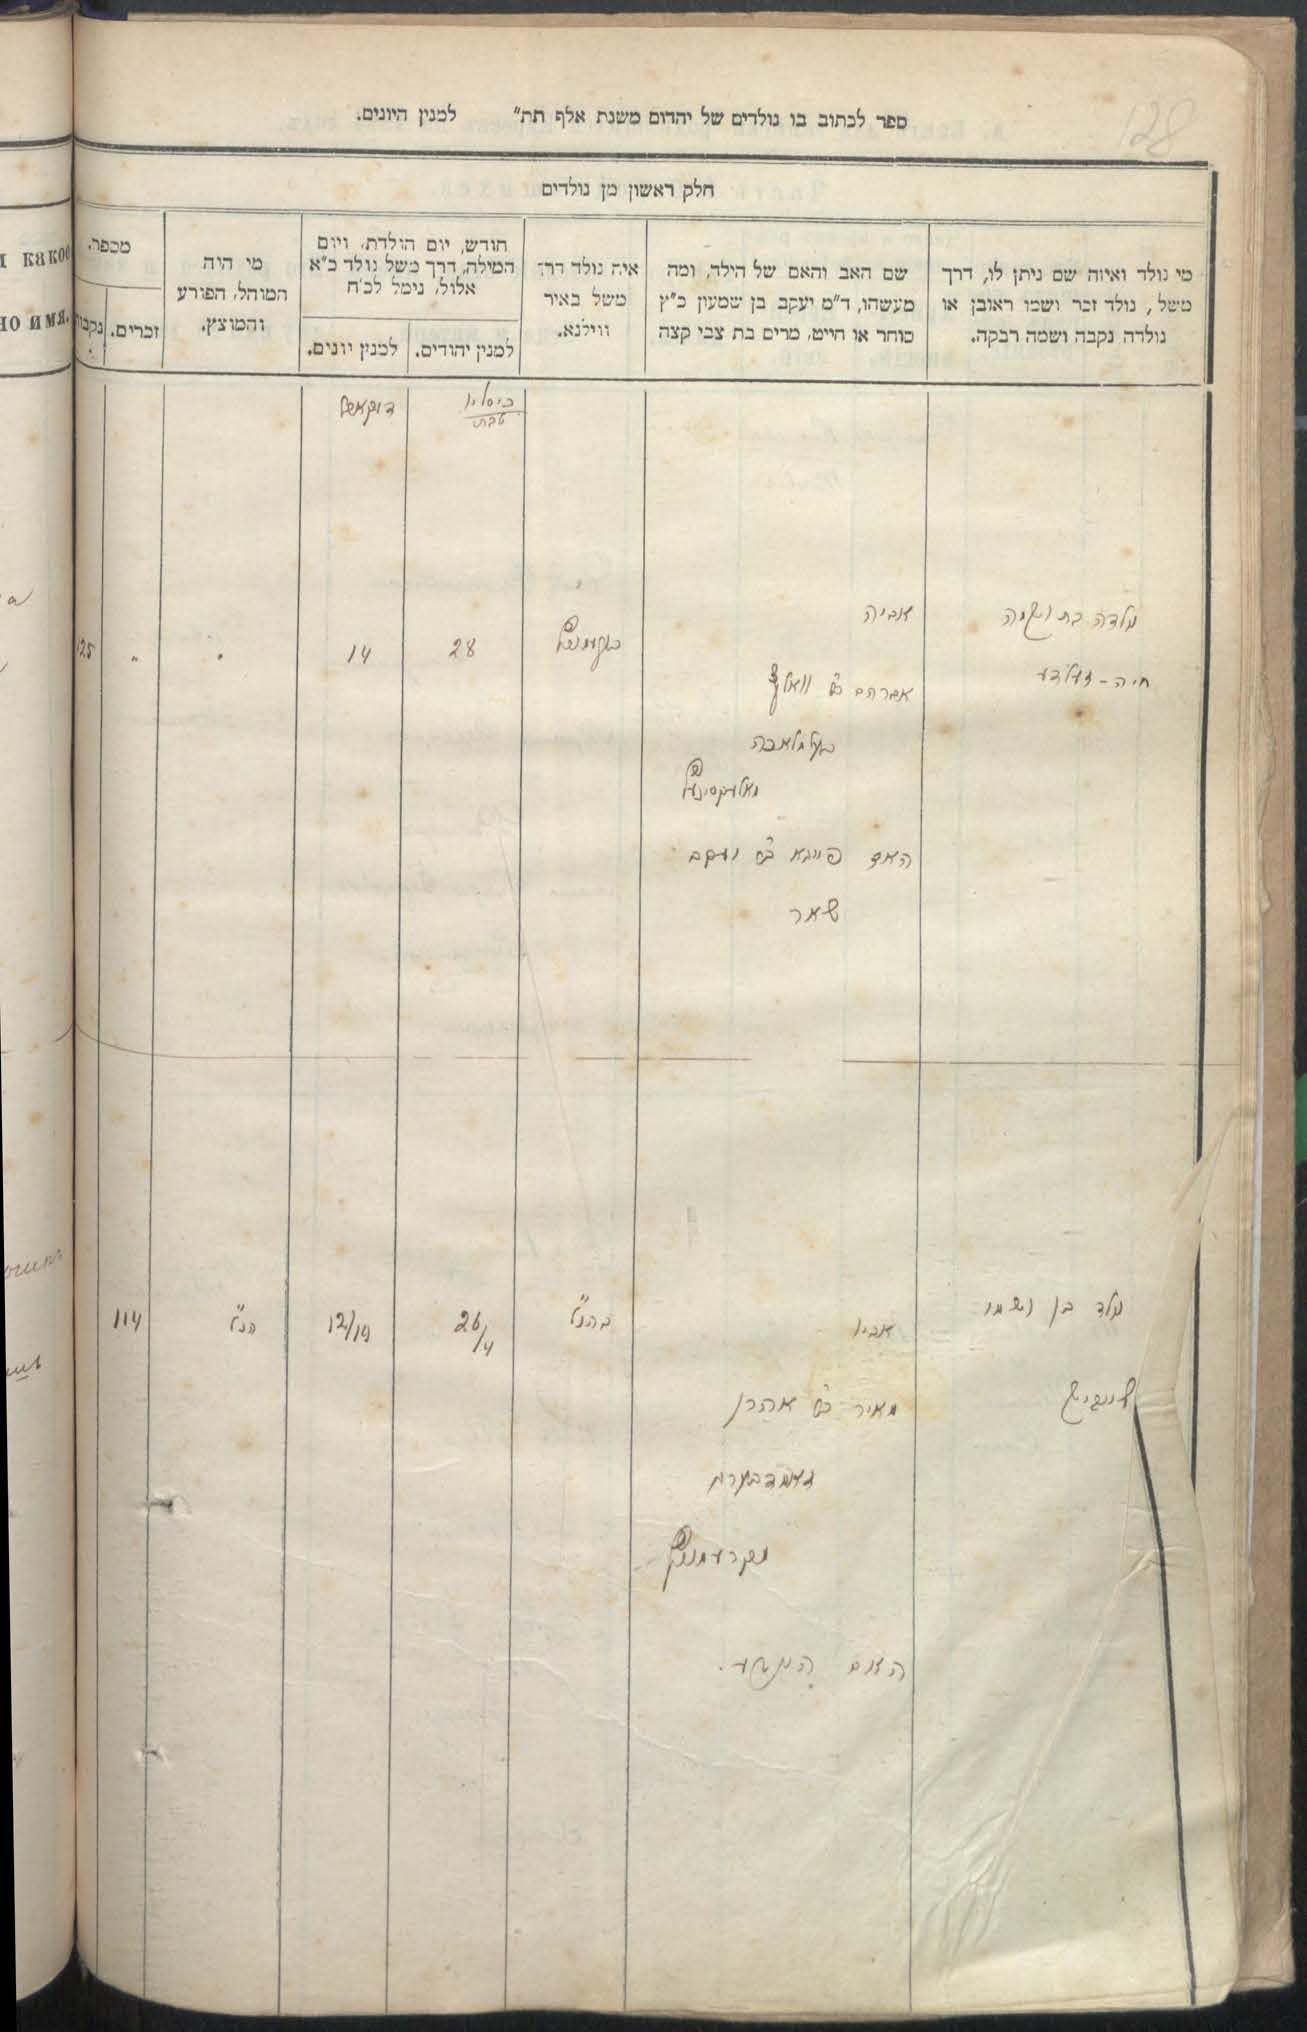 128
ספר לכתוב בו נולדים של יהדום משנת אלף תת״ למנין היונים.
חלק ראשון מן נולדים
מי נולד ואיזה שם ניתן לו, דרך
משל, נולד זכר ושמו ראובן או
נולדה נקבה ושמה רבקה.
שם האב והאם של הילד, ומה
מעשהו, ד״מ יעקב בן שמעון כ״ץ
סוחר או חייט, מרים בת צבי קצה
איה נולד דרך
משל באיר
ווילנא.
חודש, יום הולדת, ויום
המילה, דרך משל נולד כ״א
אלול, נימל לכ״ח
למנין יהודים.
למנין יונים.
מי היה
המוהל, הפורע
והמוצץ.
מספר.
זכרים.
נקבות
и какое
но имя.
כיסליו
טבת
דעקאבר
נולדה בת ושמה
חיה - זעלדע
אביה
אברהם ב״ר וואלף
האם פייגא ב״ר יעקב
שאר
28
14
"
"
125
נולד בן ושמו
אביו
מאיר ב״ר אהרן
גאלדבערג
האם הינדע.
בהנ״ל
26/4
12/19
הנ״ל
114